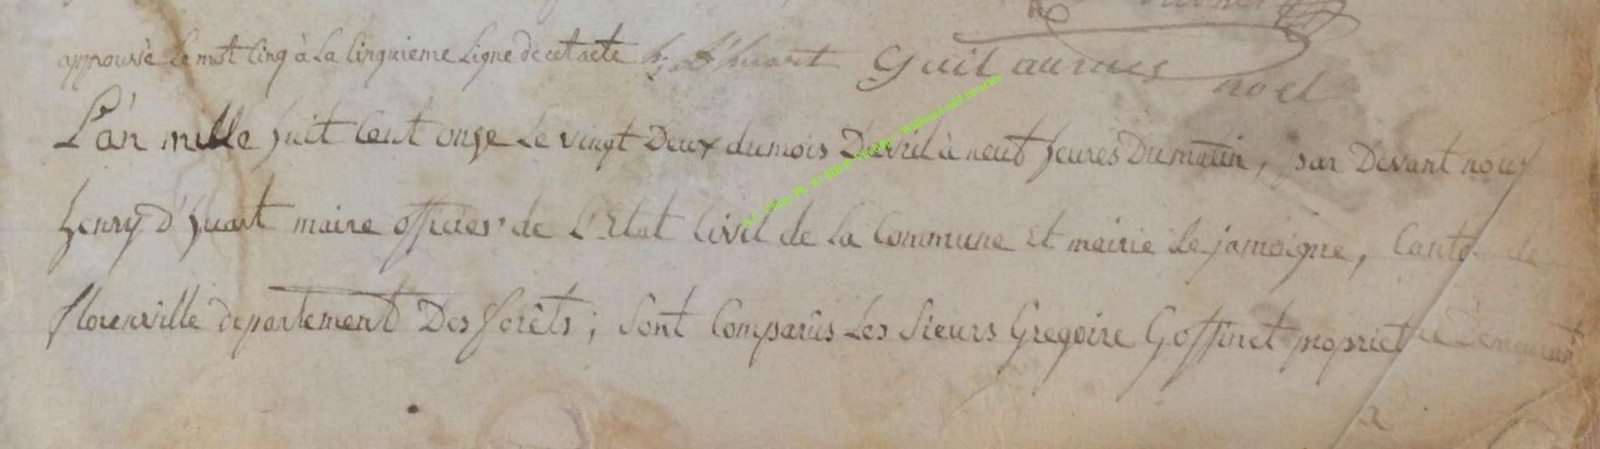 approuvé le mot cinq à la cinquieme ligne de cet acte h: d'huart Guillaumes
noel
L'an mille huit Cent onze le vingt Deux du mois D'avril à neuf heures Du matin, par Devant nous
henry d'huart maire officier de L'Etat Civil de la Commune et mairie de jamoigne, Canton de
florenville departement Des forêts ; sont Comparûs Les sieurs Gregoire Goffinet proprietaire Demeurant
a